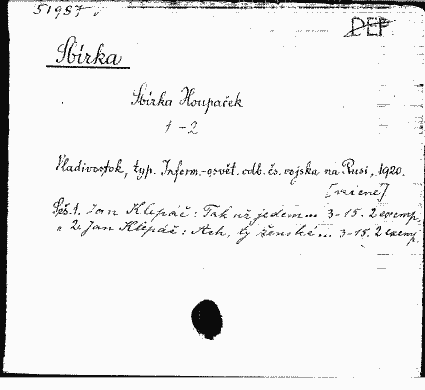 51987
DEP
Sbírka
Sbírka Houpaček
1-2
Vladivostok, typ. Inform.-osvět. odb. čs. vojska na Rusi, 1920.
Seš. 1. Jan Klepáč: Tak už jedem... 3-15. 2 exemp.
" 2. Jan Klepáč: Ach, ty ženské... 3-15. 2 exemp.